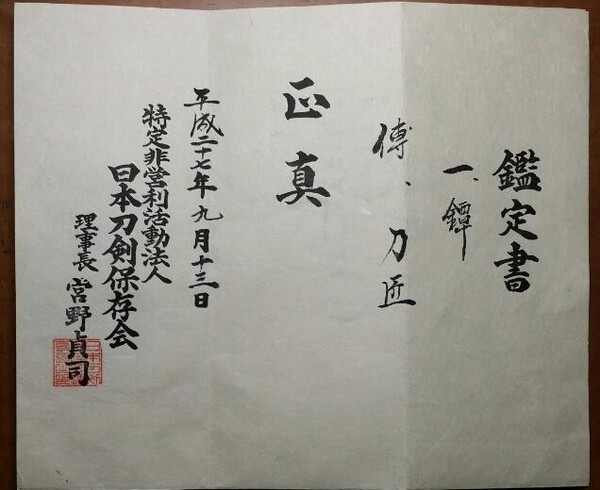 鑑定書
一、鐔
傳、刀匠
正真
平成二十七年九月十三日
特定非営利活動法人
日本刀剣保存会
理事長 宮野貞司